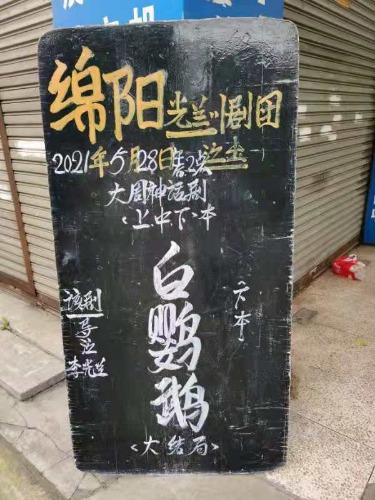 绵阳光兰川剧团
2021年5月28日
大幕神话剧
<上中下>本
白鹦鹉
下本
<大结局>
该剧
导
李光兰